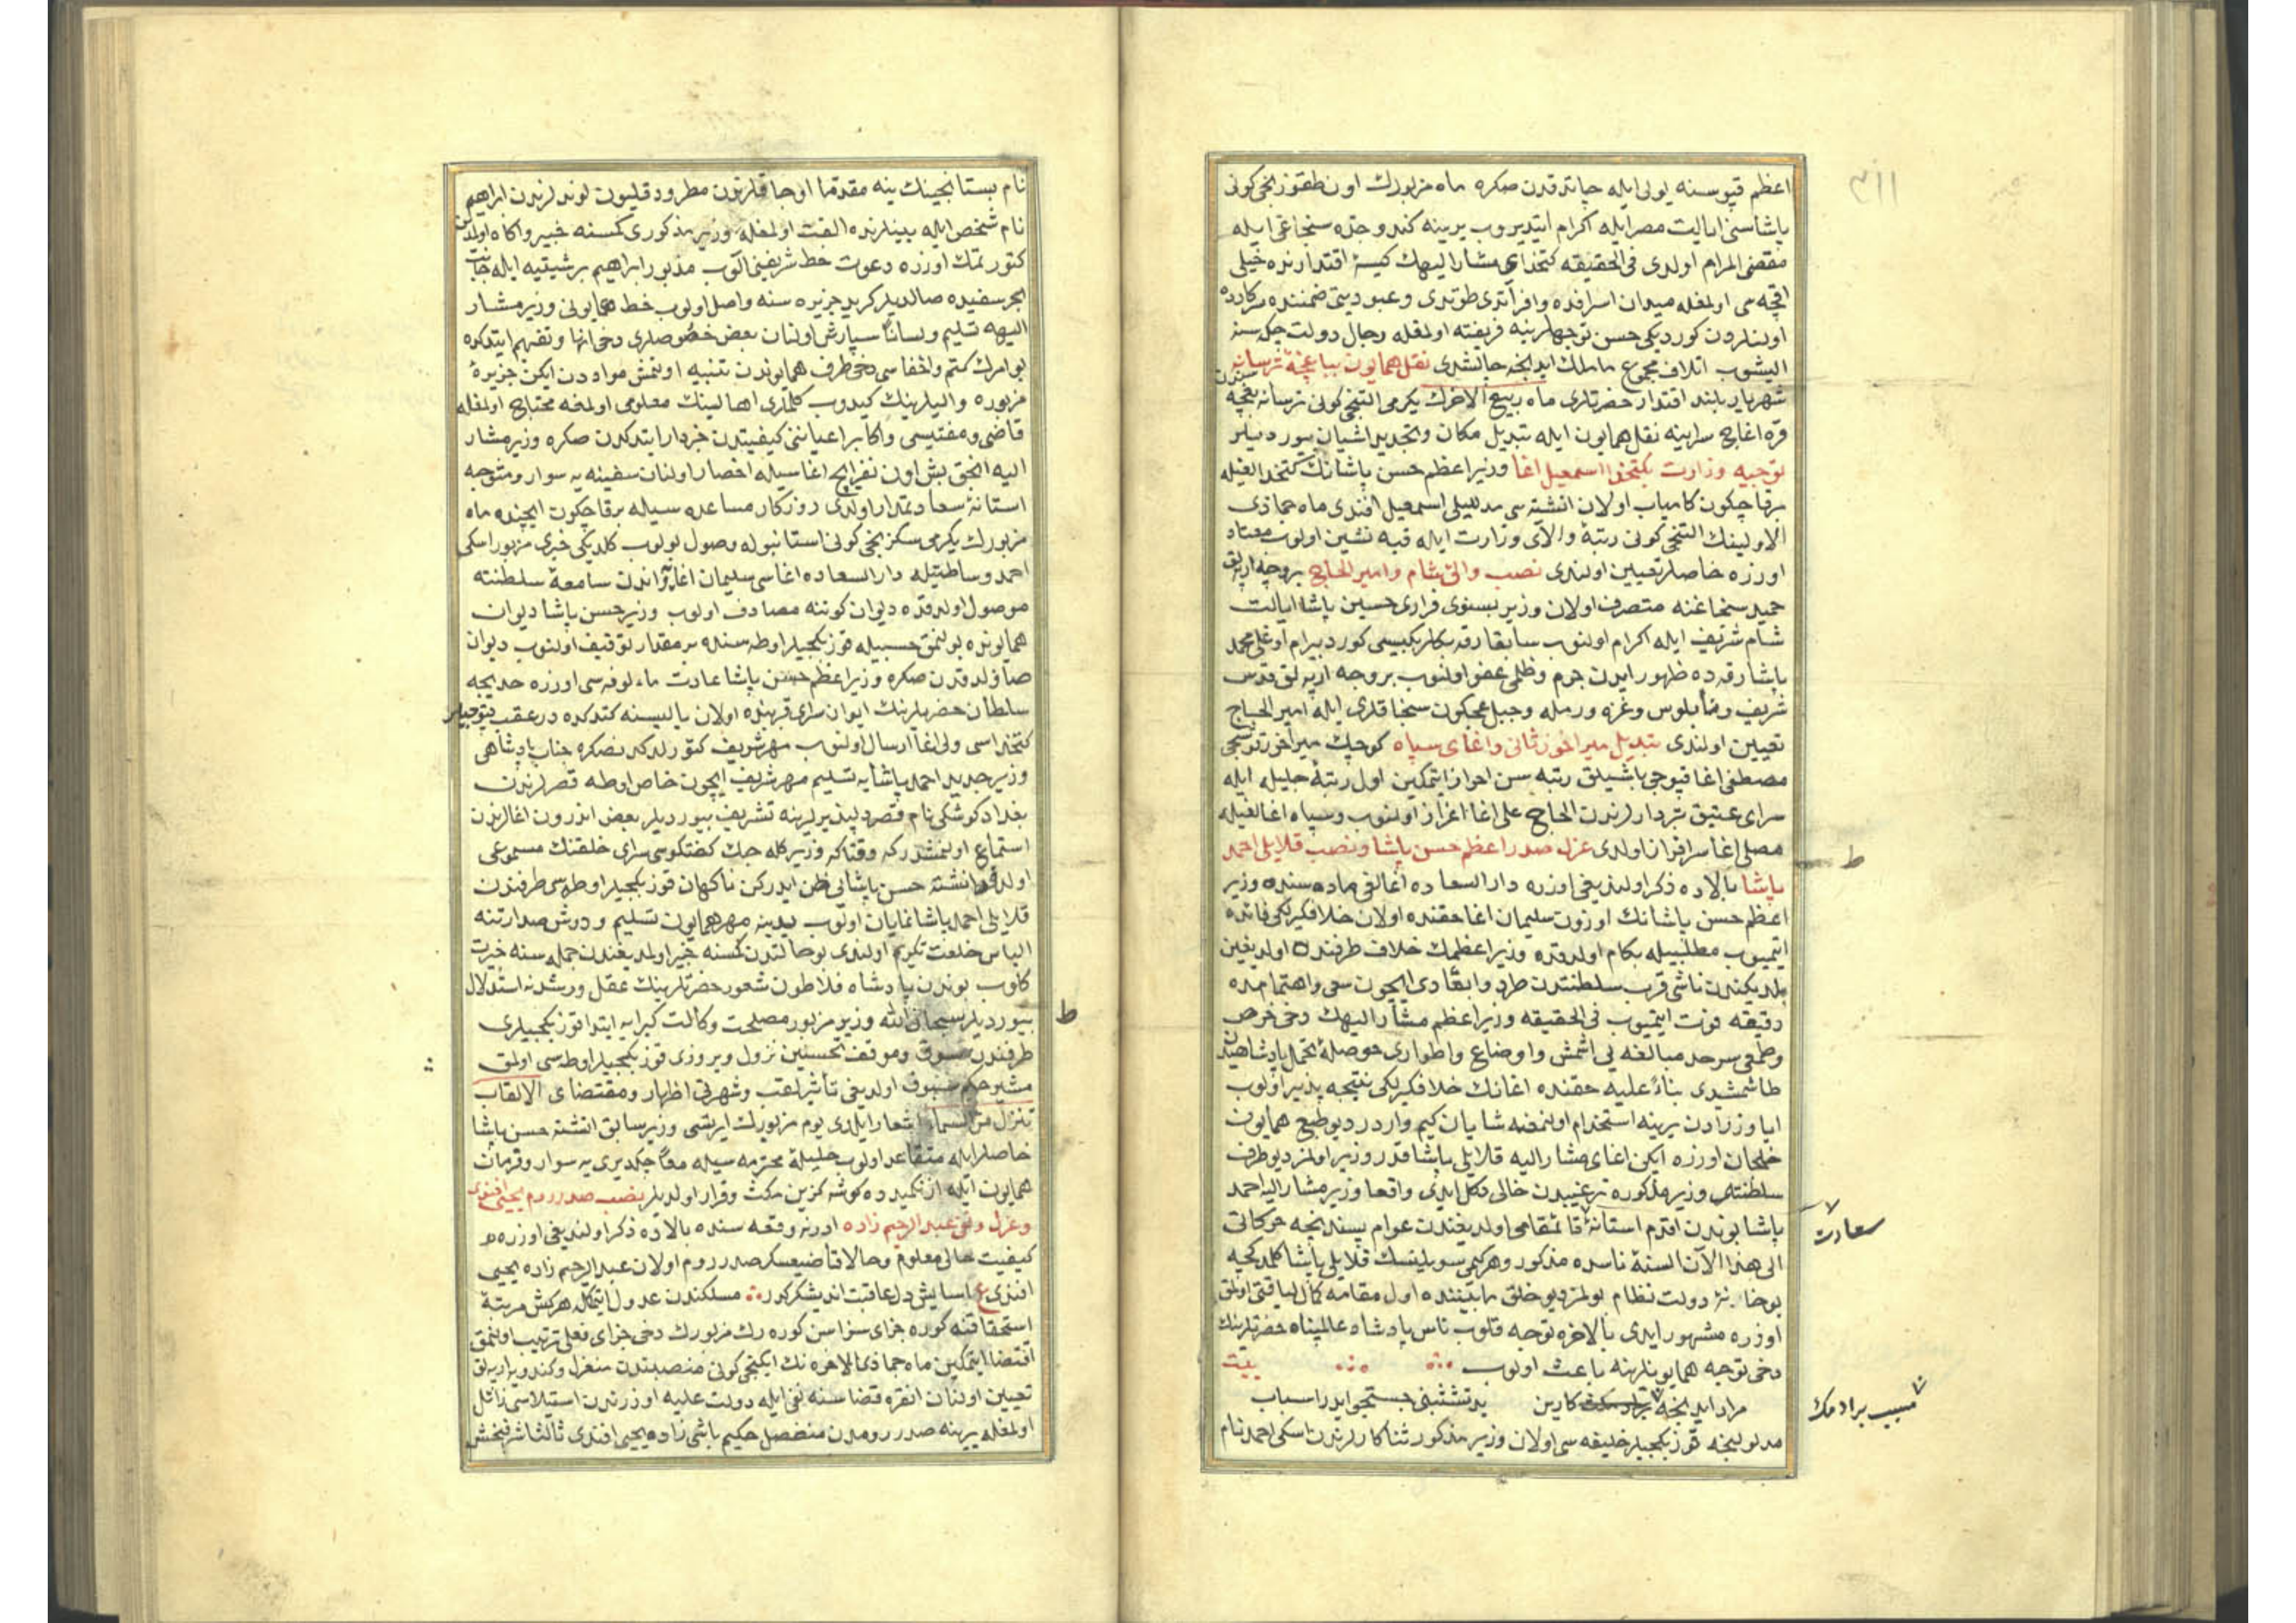 اعظم قپوسنه یولی ایله چاتدقدن صکره ماه مزبورك اون طقوزنجی کونی
پاشاسنی ایالت مصر ایله اکرام ایتدیروب یرینه کندو جده سنجاغی ایله
مقضی المرام اولدی فی الحقیقه کتخدای مشار الیهك کیسهٔ اقتدارنده خیلی
اقچه سی اولمغله میدان اسرافده وافر آتدی طوتدی وعبودیتی ضمننده سرکارده
اولنلردن کوردیکی حسن توجهلرینه فریفته اولمغله رجال دولت چکه سنه
الیشوب اتلاف مجموع ماملك ایدنجه چالشدی نقل همایون بباغچهٔ ترسانه
شهریار بلند اقتدار حضرتلری ماه ربیع الاخرك یکرمی التنجی کونی ترسانه بغچه سندن
قره اغاج سراینه نقل همایون ایله تبدیل مکان وتجدید اشیان بیوردیلر
توجیه وزارت بکتخدا اسمعیل اغا وزیر اعظم حسن پاشانك کتخدالغیله
برقاچ کون کامیاب اولان انشته سی مدللیلی اسمعیل افندی ماه جماذی
الاولینك التنجی کونی رتبهٔ والای وزارت ایله قبه نشین اولوب معتاد
اوزره خاصلر تعیین اولندی نصب والئ شام وامیر الحاج بروجه ارپه لق
حمید سنجاغنه متصرف اولان وزیر بسنوی فراری حسین پاشا ایالت
شام شریف ایله اکرام اولنوب سابقا رقه بکلربکیسی کورد بیرام اوغلی محمد
پاشا رقه ده ظهور ایدن جرم وظلمی عفو اولنوب بروجه ارپه لق قدس
شریف ونابلوس وغزه ورمله وجبل عجلون سنجاقلری ایله امیر الحاج
تعیین اولندی تبدیل میراخور ثانی واغای سپاه کوچك میراخور توتنجی
مصطفی اغا قپوجی باشیلق رتبه سن احراز ایتمکین اول رتبهٔ جلیله ایله
سرای عتیق تبردارلرندن الحاج علی اغا اعزاز اولنوب وسپاه اغالغیله
مصلی اغا سرافراز اولدی عزل صدر اعظم حسن پاشا ونصب قلایلی احمد
پاشا بالاده ذکر اولندیغی اوزره دار السعاده اغالغی ماده سنده وزیر
اعظم حسن پاشانك اوزون سلیمان اغا حقنده اولان خلافکیرلکی فائده
ایتمیوب مطلبیله بکام اولدقده وزیر اعظمك خلاف طرفنده اولدیغین
بلدیکندن ناشی قرب سلطنتدن طرد وابعادی ایچون سعی واهتمامده
دقیقه فوت ایتمیوب فی الحقیقه وزیر اعظم مشار الیهك دخی خرص
وطمعی سرحد مبالغه یی اشمش واوضاع واطواری حوصلهٔ تحمل پادشاهیدن
طاشمشدی بناءً علیه حقنده اغانك خلافکیرلکی نتیجه پذیر اولوب
ایا وزرادن یرینه استخدام اولنمغه شایان کیم واردر دیو طبع همایون
خلجان اوزره ایکن اغای مشار الیه قلایلی پاشا قدر وزیر اولمز دیو طرف
سلطنتی وزیر مذکوره ترغیبدن خالی دکل ایدی واقعا وزیر مشار الیه احمد
پاشا بوندن اقدم استانهٔ قائمقامی اولدیغندن عوام پسندانجه حرکاتی
سعادت
الی هذا الآن السنهٔ ناسده مذکور وهرکیم سویلینسك قلایلی پاشا کلمدکجه
بوخانهٔ دولت نظام بولمز دیو خلق مابیننده اول مقامه کمال لیاقتی اولمق
اوزره مشهور ایدی بالاخره توجه قلوب ناس پادشاه عالمپناه حضرتلرینك
دخی توجه همایونلرینه باعث اولوب بیت
مراد ایدنجه کارین یدتشبثنی جستجو ایدر اسباب
مسبب برادمك
مدلولنجه قوزبکجیلر خلیفه سی اولان وزیر مذکور ثناکارلرندن اسکی احمد نام
نام بستانجینك ینه مقدما اوجاقلرندن مطرود قلیون لوندلرندن ابراهیم
نام شخص ایله بینلرنده الفت اولمغله وزیر مذکوری کمسنه خبیر واکاه اولمدن
کتورتمك اوزره دعوت خط شریفنی الوب مذبور ابراهیم برشیتیه ایله جانب
بحر سفیده صالدیلر کرید جزیره سنه واصل اولوب خط همایونی وزیر مشار
الیهه تسلیم ولسانا سپارش اولنان بعض خصوصلری دخی انها وتفهیم ایتدکده
بو امرك کتم واخفاسی دخی طرف همایوندن تنبیه اولنمش مواددن ایکن جزیرهٔ
مزبوره والیلرینك کیدوب کلملری اهالینك معلومی اولمغه محتاج اولمغله
قاضی ومفتیسی واکابر اعیاننی کیفیتدن خبردار ایتدکدن صکره وزیر مشار
الیه انجق بش اون نفر ایچ اغاسیله احضار اولنان سفینه یه سوار ومتوجه
استانهٔ سعادتمدار اولدی روزکار مساعده سیله برقاچ کون ایچنده ماه
مزبورك یکرمی سکزنجی کونی استانبوله وصول بولوب کلدیکی خبری مزبور اسکی
احمد وساطتیله دار السعاده اغاسی سلیمان اغایه واندن سامعهٔ سلطنته
موصول اولدقده دیوان کوننه مصادف اولوب وزیر حسن پاشا دیوان
همایونده بولنمق حسبیله قوزبکجیلر اوطه سنده بر مقدار توقیف اولنوب دیوان
صاولدقدن صکره وزیر اعظم حسن پاشا عادت مألوفه سی اوزره خدیجه
سلطان حضرتلرینك ایوان سرای قربنده اولان یالیسنه کتدکده درعقب قپوجیلر
کتخداسی ولی اغا ارسال اولنوب مهر شریف کتورلدکدنصکره جناب پادشاهی
وزیر جدید احمد پاشایه تسلیم مهر شریف ایچون خاص اوطه قصرلرندن
بغداد کوشکی نام قصر دلپذیرلرینه تشریف بیوردیلر بعض اندرون اغالرندن
استماع اولنمشدر که وقتا که وزیر کله جك کفتکوسی سرای خلقنك مسموعی
اولدقده انشته حسن پاشایی ظن ایدرکن ناکهان قوزبکجیلر اوطه سی طرفندن
قلایلی احمد پاشا نمایان اولوب یدینه مهر همایون تسلیم ودوش صدارتنه
الباس خلعت تکریم اولندی بوحالتدن کمسنه خبیر اولمدیغندن جمله سنه خیرت
کلوب بوندن پادشاه فلاطون شعور حضرتلرینك عقل ورشدنه استدلال
بیوردیلر سبحان الله وزیر مزبور مصلحت وکالت کبرایه ابتدا قوزبکجیلری
طرفندن مسبوق وموقف تحسین نزول وبروزی قوزبکجیلر اوطه سی اولمق
مشیر حکم مسبوق اولدیغی تأثیر لقب وشهرتی اظهار ومقتضای الالقاب
تنزل من السماء اشعار ایلدی یوم مزبورك ایرتسی وزیر سابق انشته حسن پاشا
خاصلر ایله متقاعد اولوب حلیلهٔ محترمه سیله معا چکدیری یه سوار وفرمان
همایون ایله ازنکمیدده کوشه کزین مکث وقرار اولدیلر نصب صدر روم یحیی افندی
وعزل ونفی عبد الرحیم زاده ادرنه وقعه سنده بالاده ذکر اولندیغی اوزره
کیفیت حالی معلوم وحالا قاضیعسکر صدر روم اولان عبد الرحیم زاده یحیی
افندی ع اسایش دل عاقبت اندیشکر کور مسلکندن عدول ایتمکله هرکس مرتبهٔ
استحقاقنه کوره جزای سزاسن کوره رك مزبورك دخی جزای فعلی ترتیب اولنمق
اقتضا ایتمکین ماه جماذی الاخره نك ایکنجی کونی منصبندن منعزل وکندویه ارپه لق
تعیین اولنان انقره قضاسنه نفی ایله دولت علیه اوزرندن استیلاسی زائل
اولمغله یرینه صدر رومدن منفصل حکیم باشی زاده یحیی افندی ثالثا شرفبخش